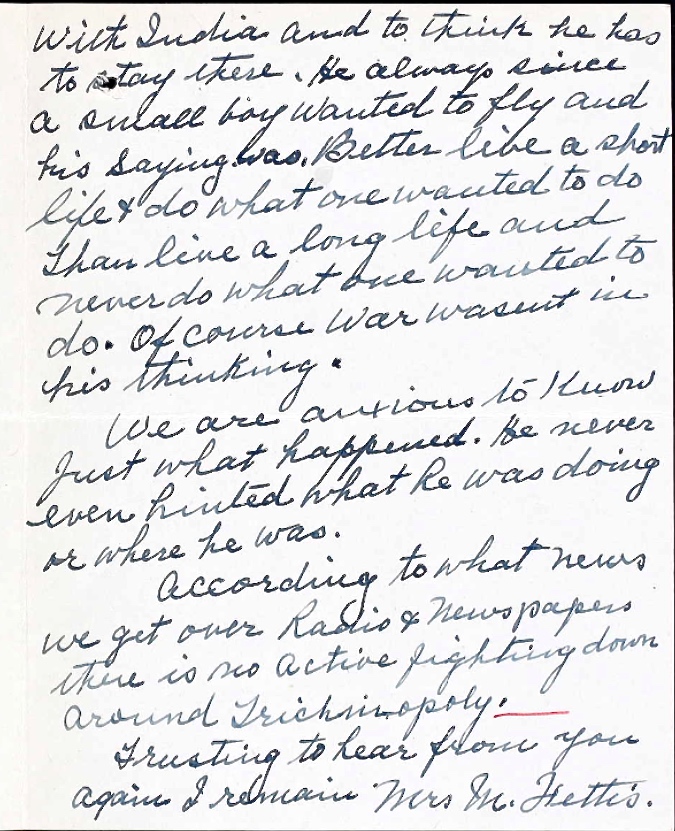 With India and to think he has
to stay there. He always since
a small boy wanted to fly and
his saying was. Better live a short
life & do what one wanted to do
Than live a long life and
never do what one wanted to
do. Of course War wasent in
his thinking.
We are anxious to Know
Just what happened. He never
even hinted what he was doing
or where he was.
According to what news
we get over Radio & Newspapers
there is no active fighting down
around Trichinopoly.
Trusting to hear from you
again I remain Mrs M. Fettis.